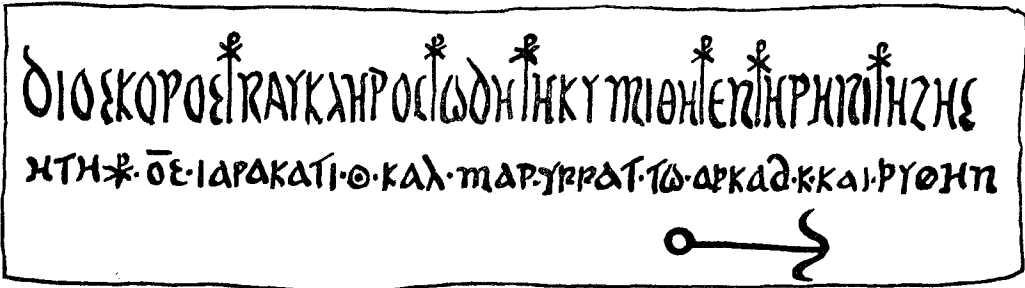 ΔΙΟΣΚΟΡΟΣ⳨ΝΑΥΚΛΗΡΟΣ⳨ΩΔΗ⳨ΗΚΥΜΙΘΗ⳨ΕΝ⳨ΗΡΗΝΙ⳨ΗΖΗΣ
ΗΤΗ⳩·Ο̅Ε·ΙΑΡΑΚΑΤΙ·Θ·ΚΑΛ·ΜΑΡ·ΥΡΡΑΤ·ΤΩ·ΑΡΚΑΔ·Κ·ΚΑΙ·ΡΥΘΗΝ